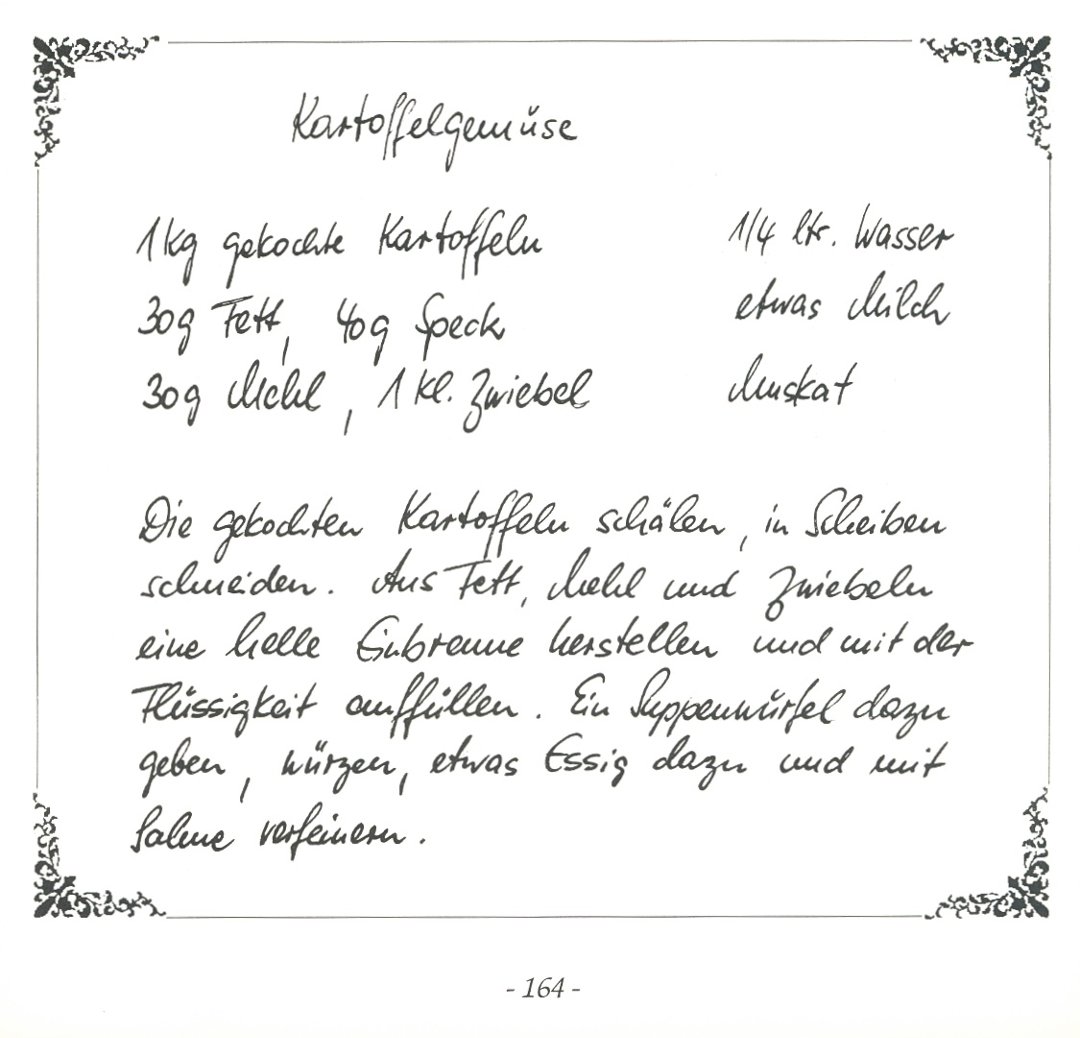 Kartoffelgemüse
1kg gekochte Kartoffeln
30g Fett, 40g Speck
30g Mehl, 1 kl. Zwiebel
1/4 ltr. Wasser
etwas Milch
Muskat
Die gekochten Kartoffeln schälen, in Scheiben
schneiden. Aus Fett, Mehl und Zwiebeln
eine helle Einbrenne herstellen und mit der
Flüssigkeit auffüllen. Ein Suppenwürfel dazu
geben, würzen, etwas Essig dazu und mit
Sahne verfeinern.
- 164 -